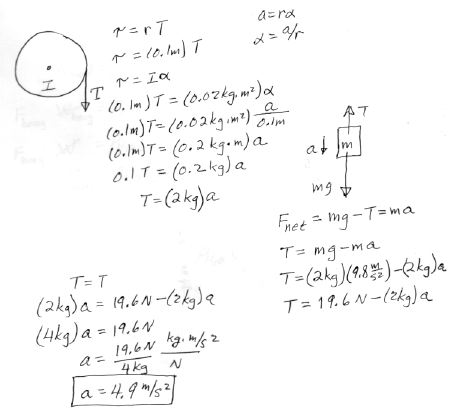 I
T
τ = r T
τ = (0.1m) T
τ = I α
(0.1m) T = (0.02kg.m²) α
(0.1m) T = (0.02kg.m²) a/0.1m
(0.1m) T = (0.2 kg.m) a
0.1 T = (0.2 kg) a
T = (2kg) a
a = rα
α = a/r
T
a
m
mg
Fnet = mg - T = ma
T = mg - ma
T = (2kg)(9.8 m/s²) - (2kg) a
T = 19.6 N - (2kg) a
T = T
(2kg) a = 19.6 N - (2kg) a
(4kg) a = 19.6 N
a = 19.6 N/4 kg kg.m/s²/N
a = 4.9 m/s²